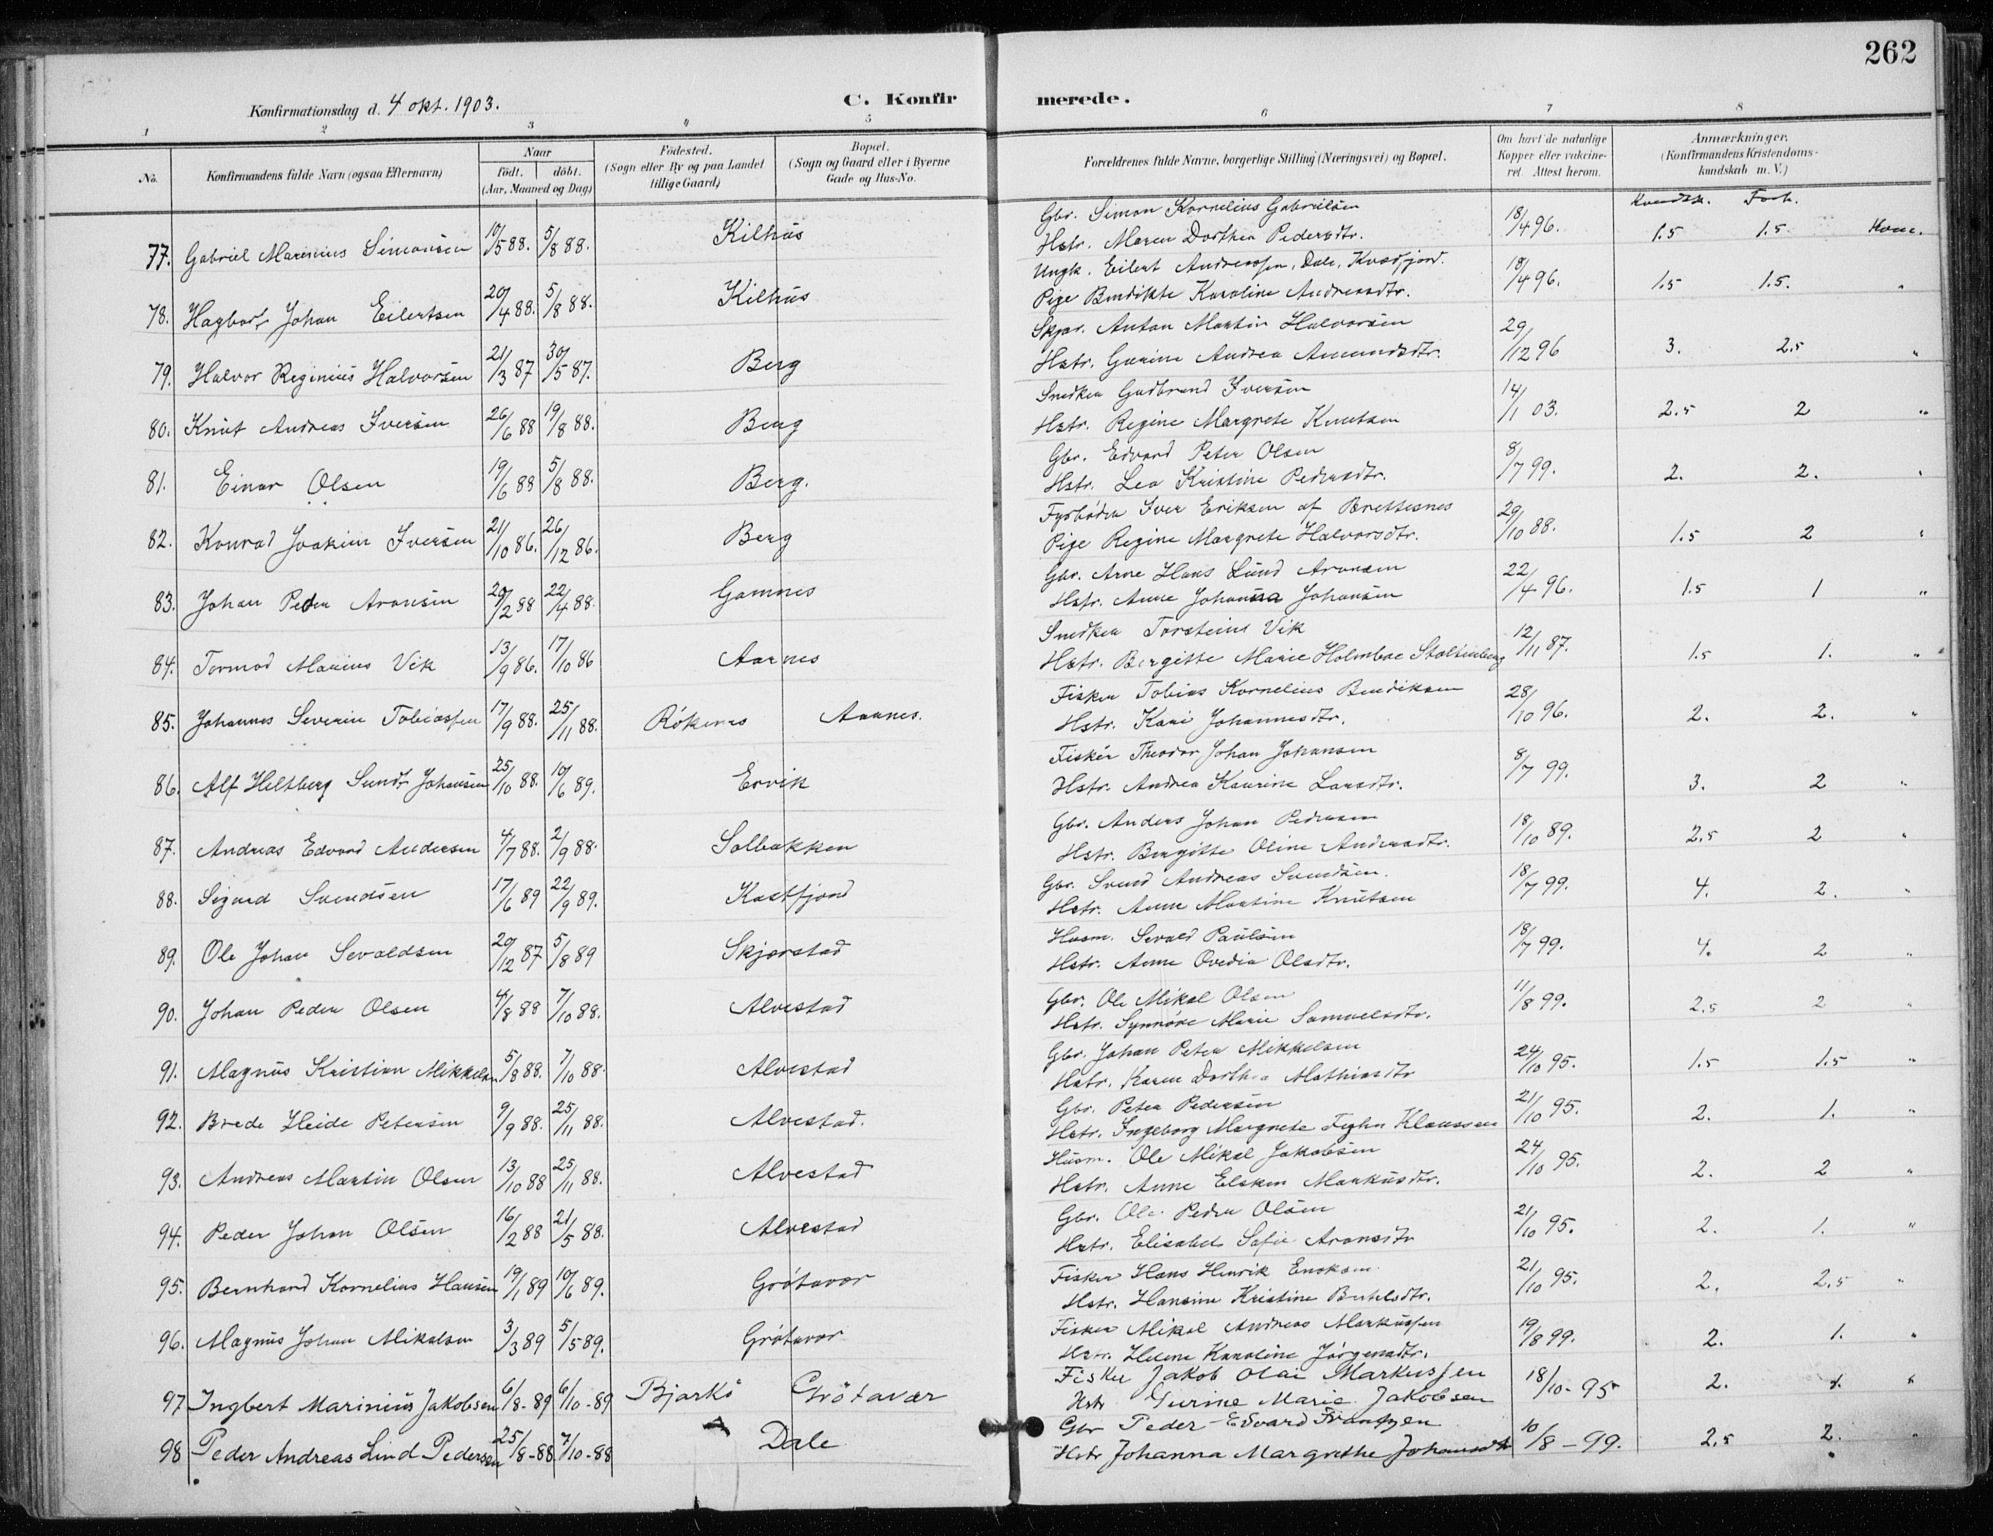 262
Konfirmationsdag d. 4 okt. 1903. C. Konfirmerede.
1 2 3 4 5 6 7 8
No. Konfirmandens fulde Navn (ogsaa Efternavn) Naar født. døbt. (Aar, Maaned og Dag) Fødested. (Sogn eller By og paa Landet tillige Gaard) Bopæl. (Sogn og Gaard eller i Byerne Gade og Hus-No. Forældrenes fulde Navne, borgerlige Stilling (Næringsvei) og Bopæl. Om havt de naturlige Kopper eller vakcineret. Attest herom. Anmærkninger. (Konfirmandens Kristendomskundskab m. V.)
Kundsk. Forh.
77. Gabriel Marenius Simonsen 10/5 88. 5/8 88. Kilhus Gbr. Simon Kornelius Gabrielsen 18/4 96. 1.5 1.5 Hvene.
Hstr. Maren Dorthea Pedersdtr.
78. Hagbart Johan Eilertsen 20/4 88. 5/8 88. Kilhus Ungk. Eilert Andreassen, Dale, Kvædfjord. 18/4 96. 1.5 1.5. "
Pige Bendikte Karoline Andreasdtr.
79. Halvor Reginius Halvorsen 21/3 87 30/5 87. Berg Skpr. Anton Martin Halvorsen 29/12 96 3. 2.5 "
Hstr. Gurine Andrea Amundsdtr.
80. Knut Andreas Iversen 26/6 88 19/8 88. Berg Snedker Gudbrand Iversen 14/1 03. 2.5 2 "
Hstr. Regine Margrete Knutsen
81. Einar Olsen 19/6 88 5/8 88. Berg. Gbr. Edvard Peter Olsen 8/7 99. 2. 2. "
Hstr. Lea Kristine Pedersdtr.
82. Konrad Joakim Iversen 21/10 86. 26/12 86. Berg Fyrbøder Iver Eriksen af Brettesnes 29/10 88. 1.5 2 "
Pige Regine Margrete Halvorsdtr.
83. Johan Peder Aronsen 20/2 88 22/4 88. Gamnes Gbr. Arne Hans Lund Aronsen 22/4 96. 1.5 1 "
Hstr. Anne Johanna Johansen
84. Tormod Marius Vik 13/9 86. 17/10 86 Aarnes Snedker Torsteins Vik 12/11 87. 1.5 1. "
Hstr. Birgitte Marie Holmboe Stoltenberg
85. Johannes Severin Tobiassen 17/9 88. 25/11 88. Røkenes Aarnes. Fisker Tobias Kornelius Bendiksen 28/10 96. 2. 2. "
Hstr. Kari Johannesdtr.
86. Alf Heltberg Sundt Johansen 25/10 88. 10/6 89. Ervik Fisker Theodor Johan Johansen 8/7 99. 3. 2 "
Hstr. Andrea Kaurine Larsdtr.
87. Andreas Edvard Andersen 4/7 88. 2/9 88. Solbakken Gbr. Anders Johan Pedersen 18/10 89. 2.5 2 "
Hstr. Bergitte Oline Andersdtr.
88. Sigurd Svendsen 17/6 89 22/9 89. Kastfjord Gbr. Svend Andreas Svendsen. 18/7 99. 4. 2. "
Hstr. Anne Martine Knutsen
89. Ole Johan Sevaldsen 20/12 87 5/8 89 Skjærstad Husm. Sevald Paulsen 18/7 99. 4. 2 "
Hstr. Anne Ovedia Olsdtr.
90. Johan Peder Olsen 4/8 88 7/10 88. Alvestad Gbr. Ole Mikal Olsen 11/8 99. 2.5 2 "
Hstr. Synnøve Marie Samuelsdtr.
91. Magnus Kristian Mikkelsen 5/8 88. 7/10 88. Alvestad Gbr. Johan Peter Mikkelsen 24/10 95. 1.5 1.5 "
Hstr. Karen Dorthea Mathiasdtr
92. Brede Heide Petersen 9/9 88. 25/11 88. Alvestad. Gbr. Peter Pedersen 21/10 95. 2. 1. "
Hstr. Ingeborg Margrete Klaussen
93. Andreas Martin Olsen 13/10 88 25/11 88. Alvestad Husm. Ole Mikal Jakobsen 24/10 95. 2. 2 "
Hstr. Anne Elsken Markusdtr.
94. Peder Johan Olsen 16/2 88 21/5 88. Alvestad Gbr. Ole Peder Olsen 21/10 95. 2. 1. "
Hstr. Elisabet Sofie Aronsdtr
95. Bernhard Kornelius Hansen 19/1 89 10/6 89. Grøtavær Fisker Hans Henrik Enoksen. 21/10 95. 2. 2.5 "
Hstr. Hansine Kristine Bertelsdtr.
96. Magnus Johan Mikalsen 3/3 89 5/5 89. Grøtavær Fisker Mikal Andreas Markussen 19/8 99. 2. 1. "
Hstr. Helene Karoline Jørgensdtr.
97 Ingbert Marinius Jakobsen 6/8-89 6/10-89 Bjarkø Grøtavær Fisker Jakob Olai Markussen 18/10-95 2. 1. "
Hstr Jakobsen
98 Peder Andreas Lind Pedersen 25/8-88. 7/10-88 Dale Gbr Peder Edvard Frantzen 10/8-99. 2.5 2. "
Hstr Johanna Margrethe Johansdtr